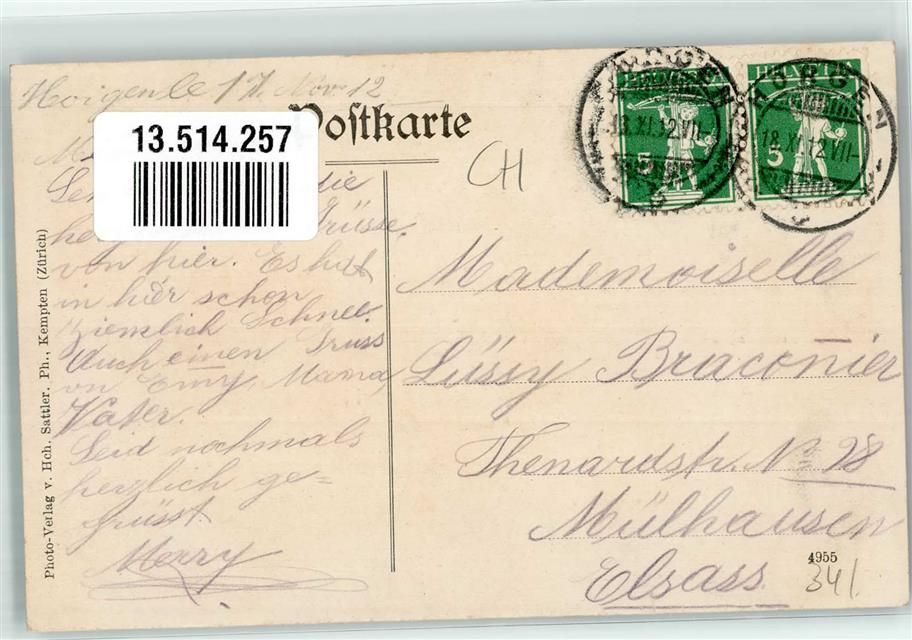 17. Nov. 12
Postkarte
13.514.257
CH
HORGEN
18.XI.12.VII-
5
HELVETIA
HORGEN
18.XI.12.VII-
5
die
Grüsse
von hier. Es hat
in hier schon
ziemlich Schnee.
Auch einen Gruss
on Emy, Mama,
Vater.
Seid nochmals
herzlich ge=
grüsst.
Merry
Mademoiselle
Lüssy Braconier
Thenardstr. No 28
Mülhausen
Elsass.
4955
341.
Photo-Verlag v. Hch. Sattler. Ph., Kempten (Zürich)